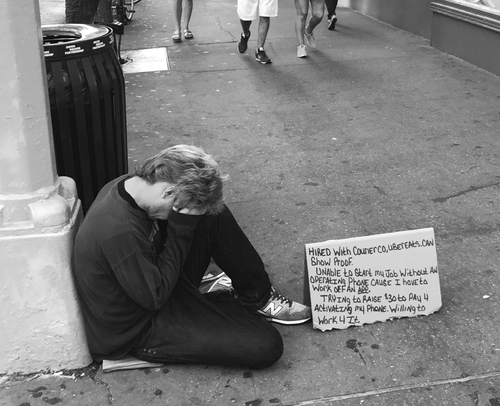 HIRED With CourierCO, UBEREATS. CAN
Show Proof.
UNABLE to Start my Job Without AN
OPERATING Phone CAUSE I have to
Work OFF AN APP.
TRYING to RAISE $30 to PAY 4
ACTIVATING my Phone. Willing to
Work 4 It
N